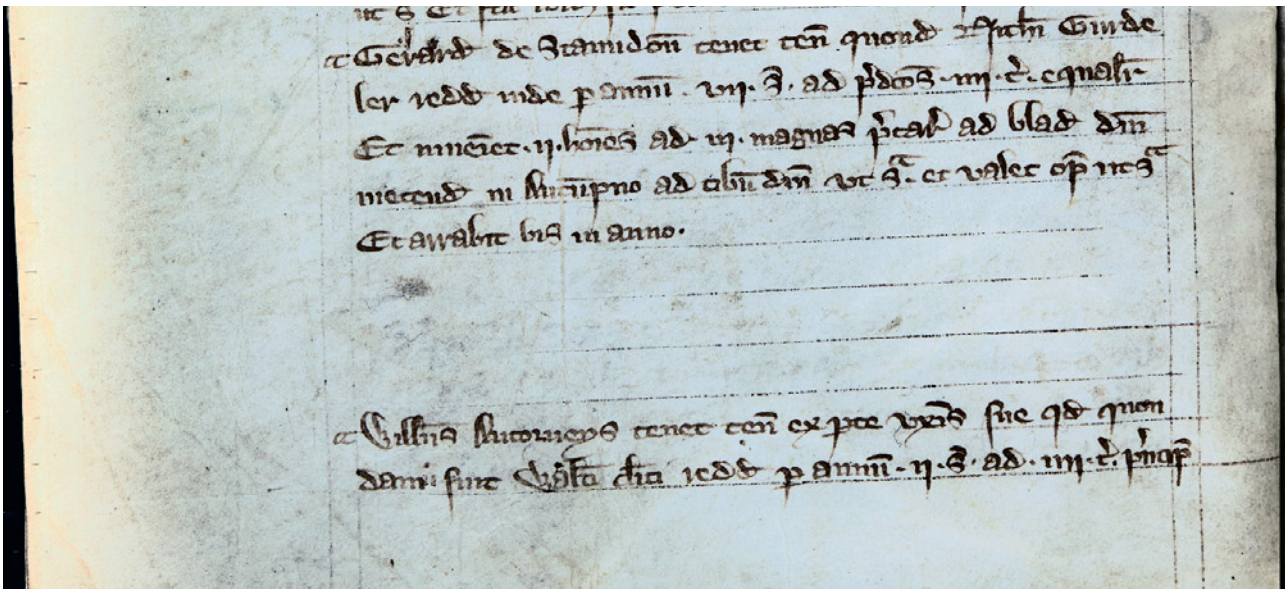 ut s̄ Et
Gerard de Staundon̄ tenet ten̄ quond Ric̄hi Girde
ler redd̄ inde p annū . vii . s̄ . ad p̄dc̄os . iiii . t̄ . equalit̄
Et inueniet . ii . hōies ad . iii . magnas p̄car̄ ad blad̄ dn̄i
metend̄ in Autūpno ad cibū dn̄i vt sᵃ . et valet op̄ ut sᵃ
Et arrabit bis in anno .
Willm̄s Attorneys tenet ten̄ ex pte vxīs sue qd̄ quon
dam fuit Walt̄i cl̄ici redd̄ p annū . ii . s̄ . ad . iiii . t̄ . p̄ncip̄